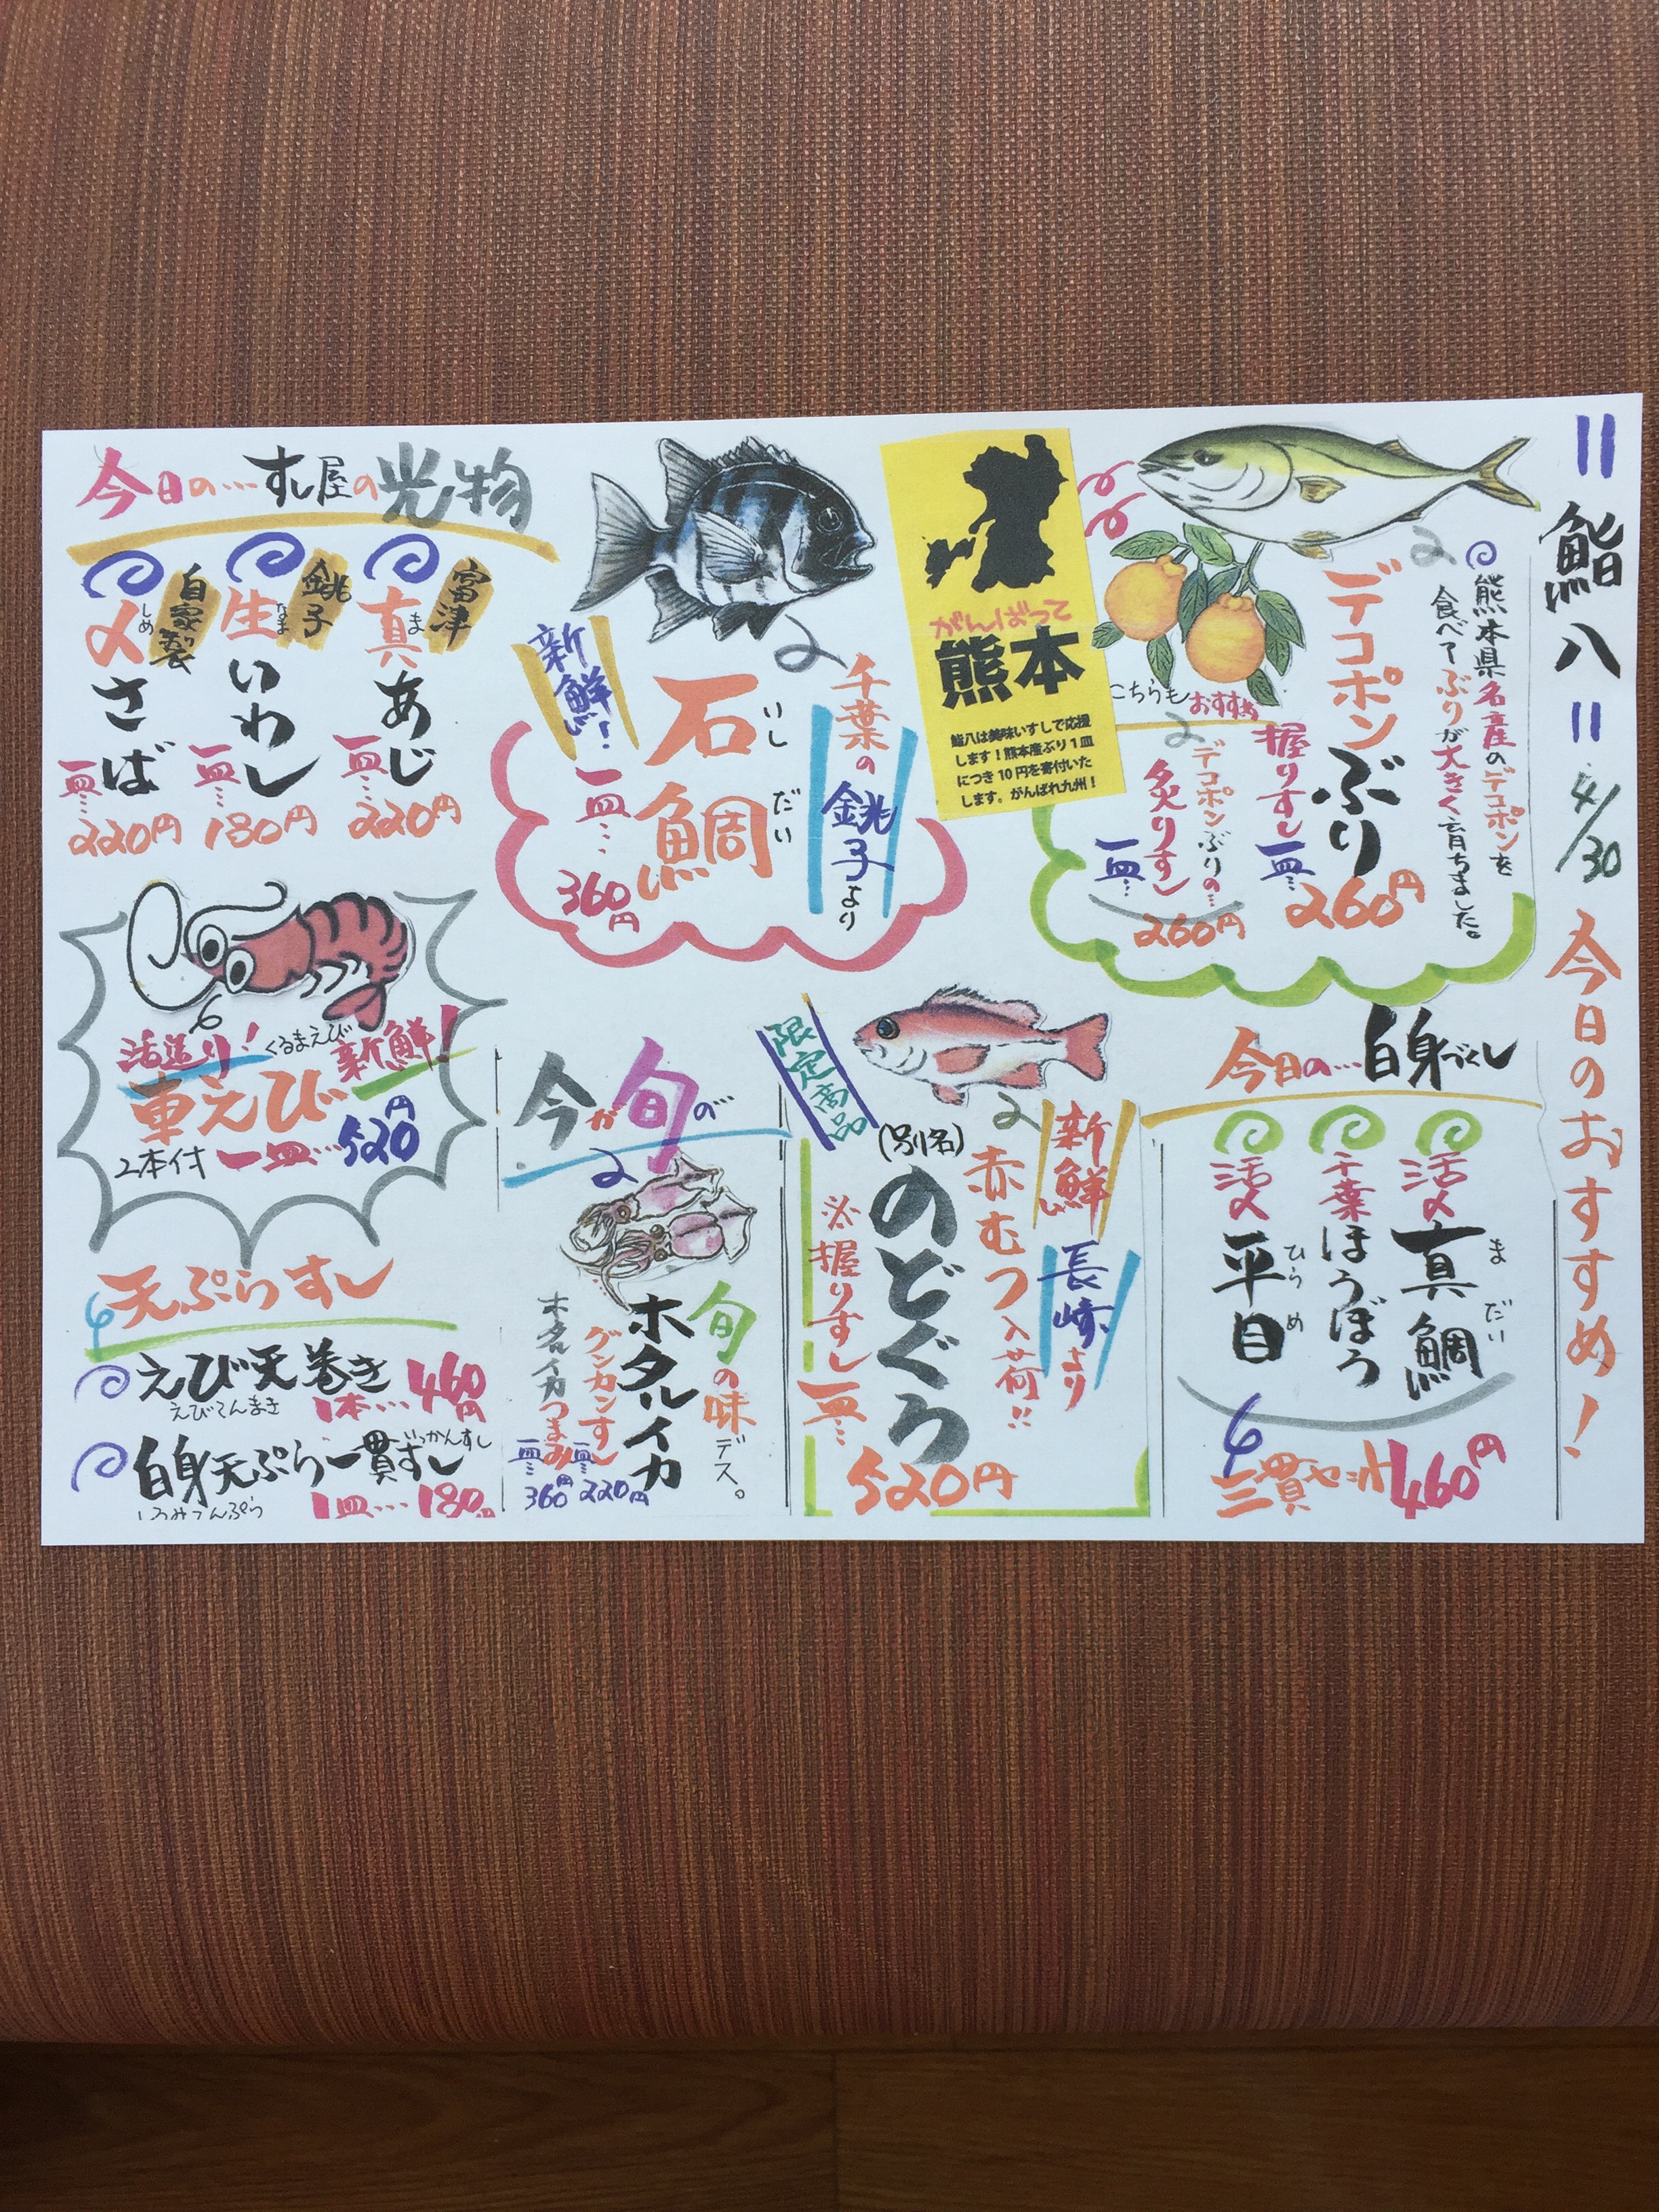 鮨八 4/30 今日のおすすめ!
熊本県名産のデコポンを
食べてぶりが大きく育ちました。
デコポンぶり
握りずし一皿… 260円
こちらもおすすめ
デコポンぶりの…
炙りずし
一皿… 260円
がんばって
熊本
鮨八は美味いすしで応援
します!熊本産ぶり1皿
につき10円を寄付いた
します。がんばれ九州!
千葉の
銚子より
石鯛
いしだい
新鮮!
一皿… 360円
今日の…すし屋の光物
富津
真あじ
ま
一皿… 220円
銚子
生いわし
なま
一皿… 180円
自家製
〆さば
しめ
一皿… 220円
今日の…白身づくし
活〆
真鯛
まだい
千葉
ほうぼう
活〆
平目
ひらめ
三貫セット460円
限定商品
新鮮
長崎より
赤むつ入荷!!
(別名)
のどぐろ
※握りずし一皿…
520円
今が旬の
旬の味デス。
ホタルイカ
グンカンずし
一皿… 220円
ホタルイカつまみ
一皿… 360円
活造り!くるまえび新鮮!
車えび
2本付 一皿… 520円
天ぷらすし
えび天巻き
えびてんまき
1本… 460円
白身天ぷら一貫ずし
いっかんずし
しろみてんぷら
1皿… 180円